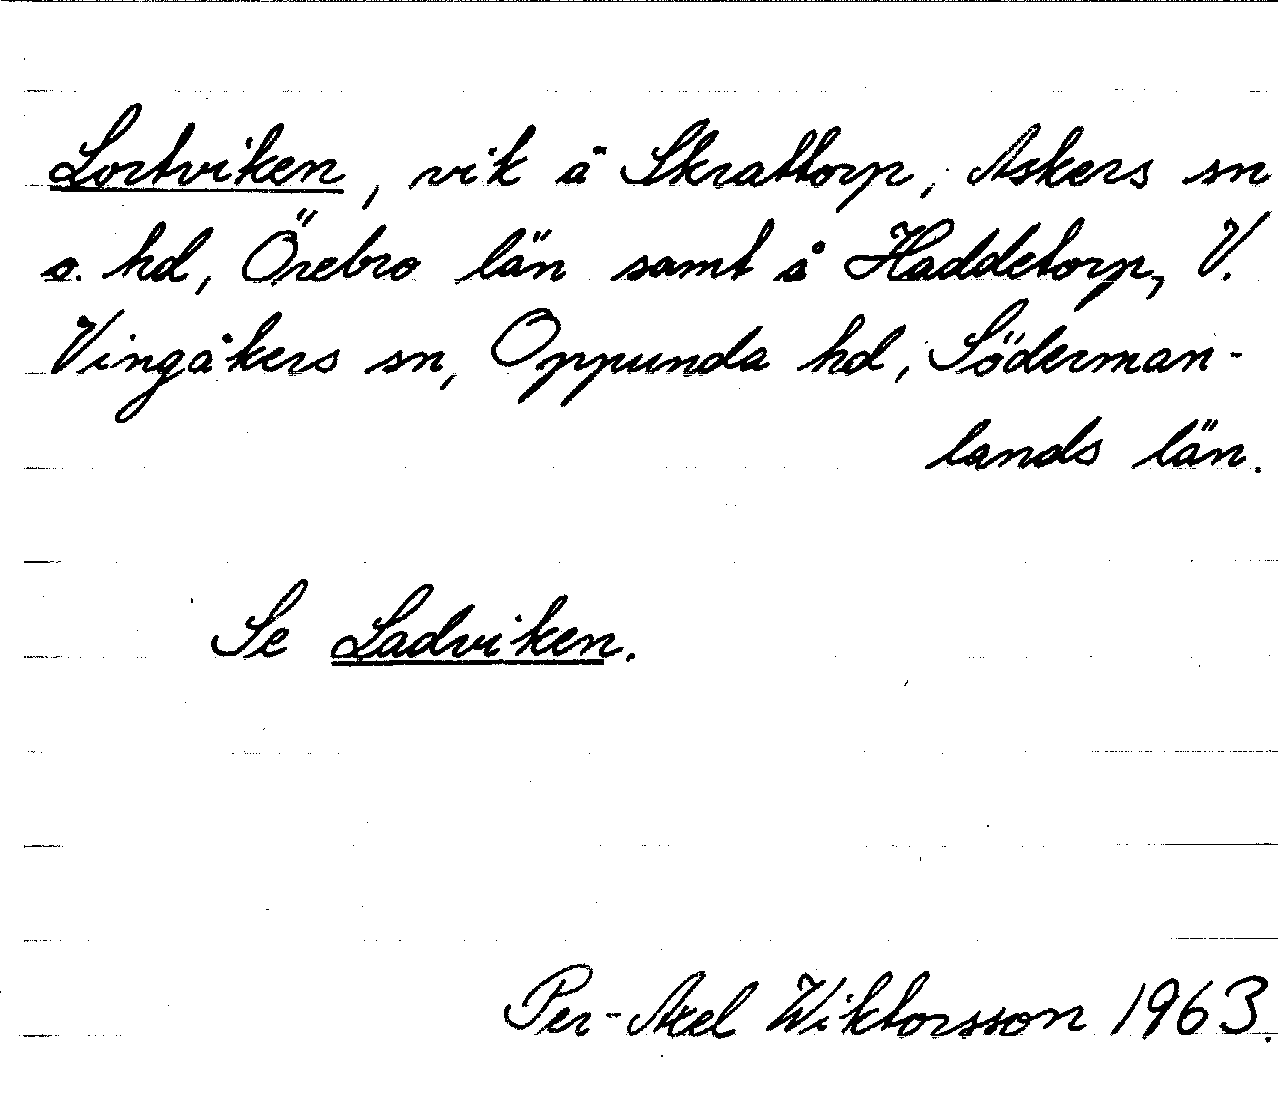 Lortviken, vik å Skrattorp, Askers sn
o. hd, Örebro län samt å Haddetorp, V.
Vingåkers sn, Oppunda hd, Söderman-
lands län.
Se Ladviken.
Per-Axel Wiktorsson 1963.